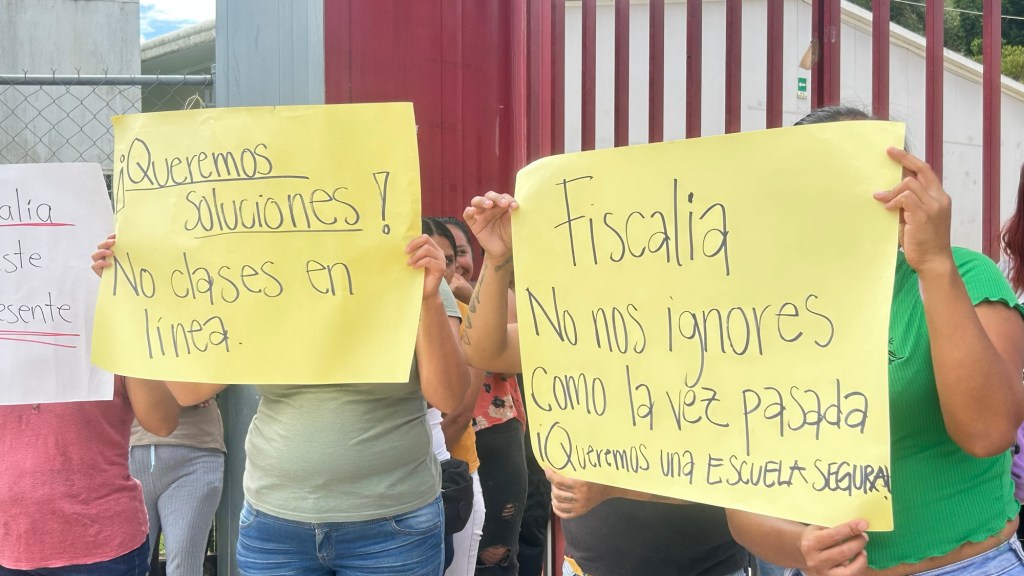 alía
ste
esente
¡Queremos
soluciones!
No clases en
línea.
Fiscalia
No nos ignores
como la vez pasada
¡Queremos una ESCUELA SEGURA!